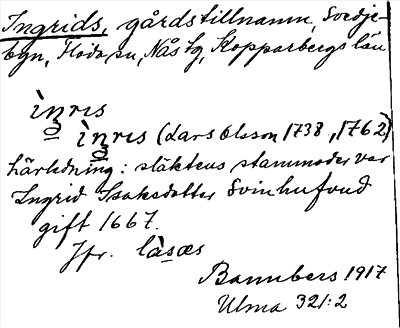 Ingrids, gårdstillnamn, Svedje-
byn, Floda sn, Nås tg, Kopparbergs län
ìŋris
ìŋris (Lars Olsson 1738, 1762)
härledning: släktens stammoder var
Ingrid Isaksdotter Svinhufvud
gift 1667.
Jfr. làsæs
Bannbers 1917
Ulma 321:2